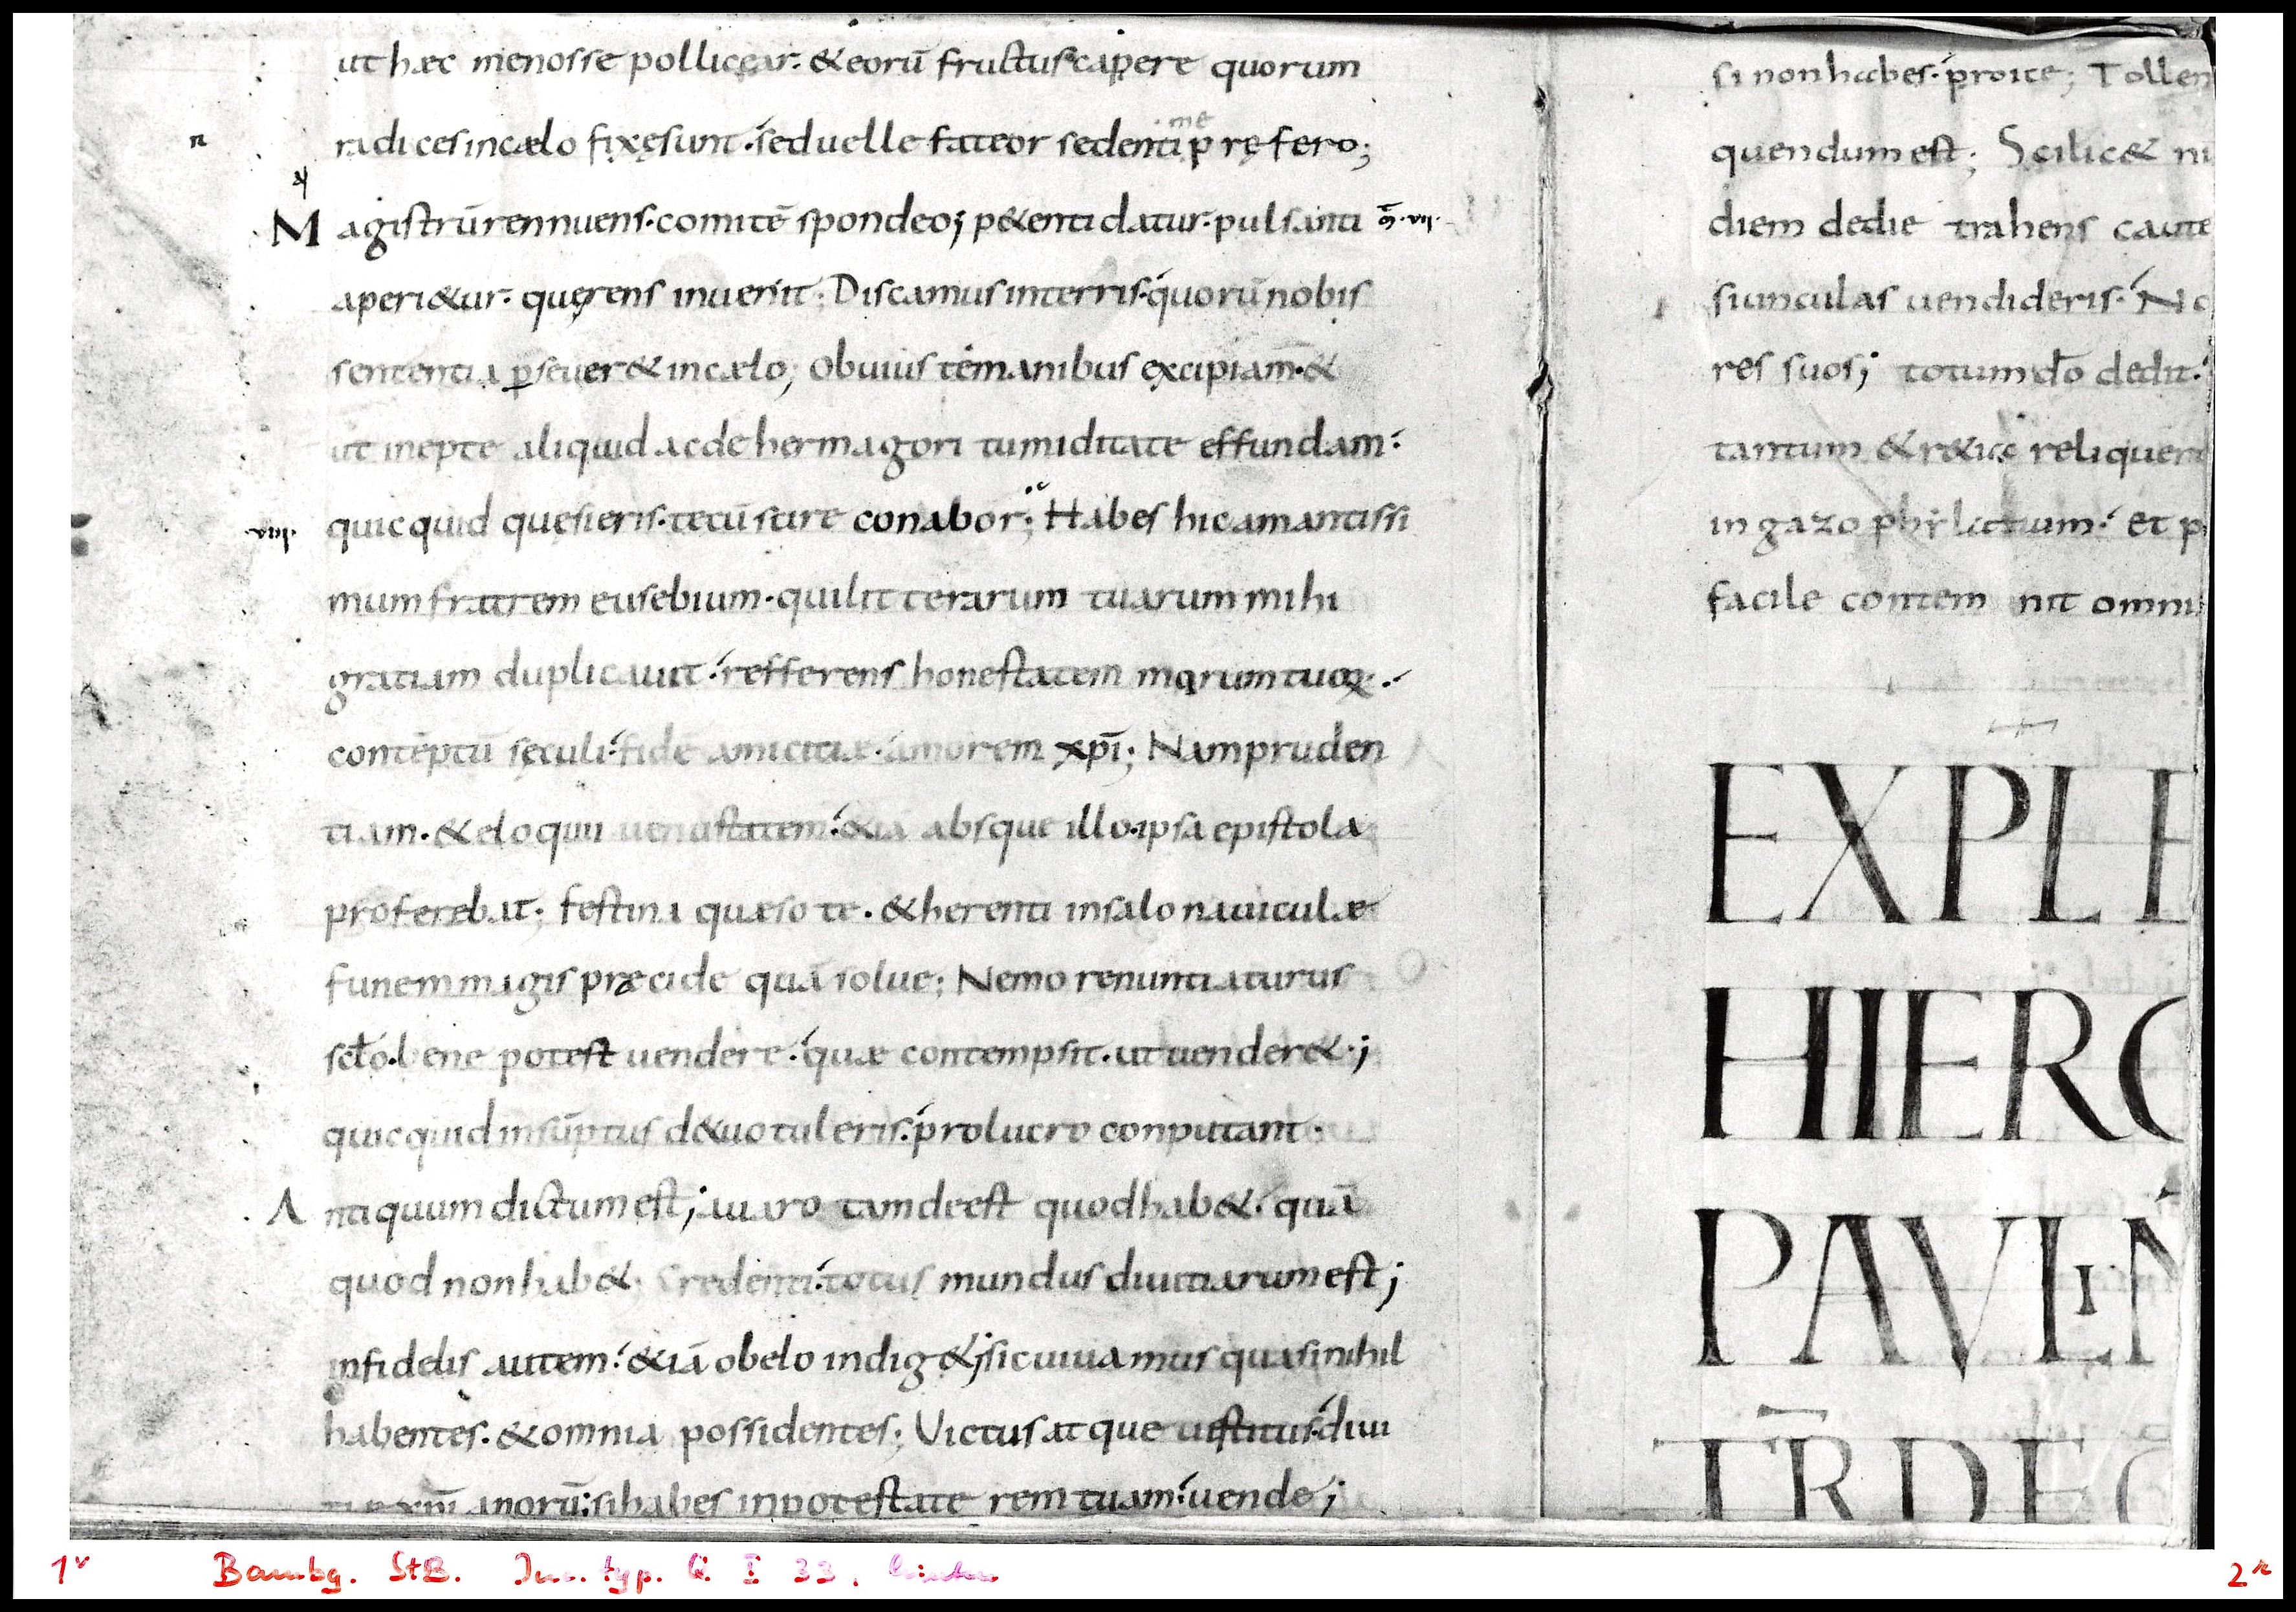 ut hæc menosse pollicear. & eorū fructus capere quorum
radices in cælo fixę sunt. sed uelle fateor sedenti prę fero;
me
n
Magistrū rennuens. comitē spondeo; p&enti datur. pulsanti
aperi&ur. quęrens inuenit; Discamus in terris. quorū nobis
sententia ꝑseuer& in cælo; Obuiis te manibus excipiam. &
ut inepte aliquid ac de hermagori tumiditate effundam.
quicquid quesieris. tecū scire conabor; Habes hic amantissi
viii.
mum fratrem eusebium. qui litterarum tuarum mihi
gratiam duplicauit. refferens honestatem morum tuoꝝ.
contēptū sęculi. fidē amicitiæ. amorem xp̄i; Nam pruden
tiam. & eloquii uenustatem. &iā absque illo. ipsa epistola
proferebat; festina quæso te. & herenti in salo nauiculæ
funem magis præcide quā solue; Nemo renuntiaturus
sclo. bene potest uendere. quæ contempsit. ut uender&;
quicquid in sūptus d&uo tuleris. pro lucro conputant.
Antiquum dictum est; auaro tam deest quod hab&. quā
quod non hab&. Credenti. totus mundus diuitiarum est;
infidelis autem. &iā obelo indig&; sic uiuamus quasi nihil
habentes. & omnia possidentes; Victus atque uestitus. diui
tiæ xp̄ianorū; si habes in potestate rem tuam. uende;
si non habes. proice; Tollen
quendum est; Scilic& ni
diem de die trahens caute
siunculas uendideris. No
res suos; totum dō dedit.
tantum & r&ia reliquer
in gazophylatium. et p
facile contem nit omni
EXPLE
HIERO
PAVLIN
TR̄ DE
1v Bambg. StB. Inc. typ. Q. I 33, hinten
2r